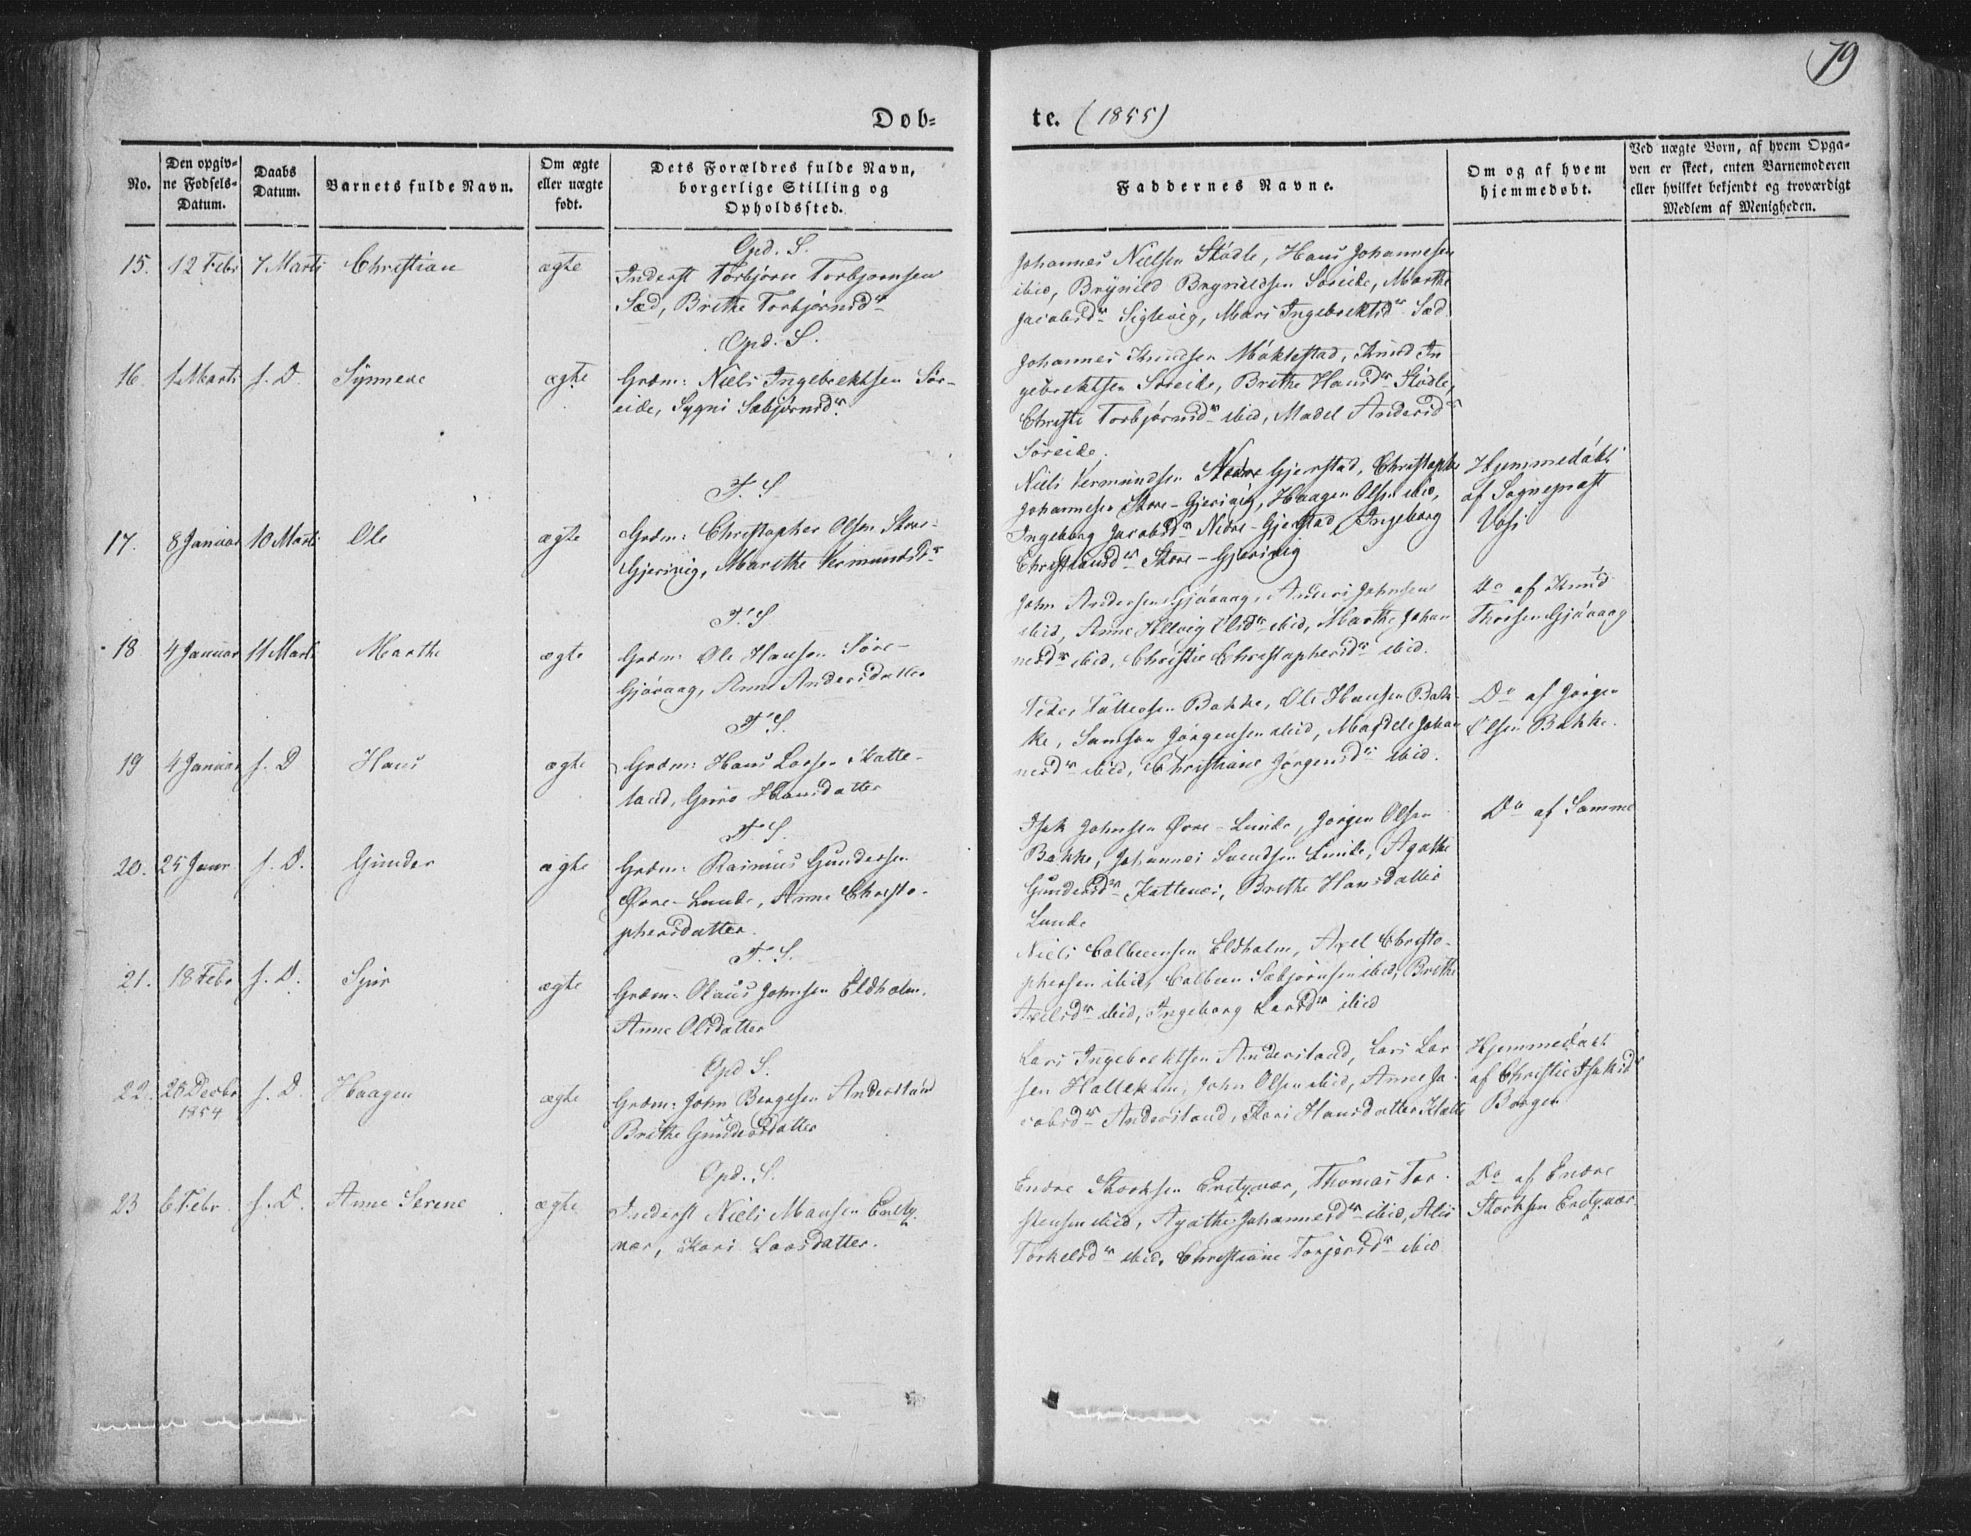 79
Døb-
te. (1855)
No.
Den opgiv-
ne Fødsels-
Datum.
Daabs
Datum.
Barnets fulde Navn.
Om ægte
eller uægte
født.
Dets Forældres fulde Navn,
borgerlige Stilling og
Opholdssted.
Faddernes Navne.
Om og af hvem
hjemmedøbt.
Ved uægte Børn, af hvem Opga-
ven er skeet, enten Barnemoderen
eller hvilket bekjendt og troværdigt
Medlem af Menigheden.
15. 12 Febr 7 Marts Christian ægte
Opd. S.
Inderst Torbjørn Torbjørnsen
Sæd, Brithe Torbjørnsdr
Johannes Nielsen Stødle, Hans Johannesen
ibid, Brynild Brynildsen Søreide, Marthe
Jacobsdr Siglevig, Mari Ingebrektsdr Sæd.
16. 1 Marts s. D. Synneve ægte
Opd. S.
Grdm: Niels Ingebrektsen Sør-
eide, Sygni Sæbjørnsdr.
Johannes Knudsen Møklestad, Knud In
gebrektsen Søreide, Brithe Hansdr Stødle,
Christi Torbjørnsdr ibid, Madel Andersdr
Søreide.
17. 8 Januar 10 Marts Ole ægte
T. S.
Grdm: Christopher Olsen Store-
Gjersvig, Marithe Vermundsdr
Niels Vermundsen Nedre Gjerstad, Christopher
Johannesen Store-Gjersvig, Haagen Olsen ibid,
Ingeborg Jacobsdr Nedre-Gjerstad, Ingeborg
Christiansdr Store-Gjersvig
Hjemmedøbt
af Sognepræst
Voss
18. 4 Januar 11 Marts Marthe ægte
T. S.
Grdm: Ole Hansen Søre-
Gjøvaag, Anne Andersdatter
John Andersen Gjøvaag, Anders Johnsen
ibid, Anne Helvig Olsdr ibid, Marthe Johan
nesdr ibid, Christie Christophersdr ibid.
Do af Knud
Thorsen Gjøvaag
19 4 Januar s. D Hans ægte
T. S.
Grdm: Hans Larsen Katte-
land, Guro Hansdatter
Peder Bakke, Ole Hansen Bak-
ke, Samson Jørgensen ibid, Magdele Johan
nesdr ibid, Christiane Jørgensdr ibid.
Do af Jørgen
Olsen Bakke.
20. 25 Janr s. D. Gunder ægte
T. S.
Grdm: Rasmus Gundersen
Øvre-Lunde, Anne Christo-
phersdatter.
Isak Johnsen Øvre-Lunde, Jørgen Olsen
Bakke, Johannes Svendsen Lunde, Agathe
Gundersdr Kattenes, Brithe Hansdatter
Lunde
Do af Samme
21. 18 Febr s. D. Siur ægte
T. S.
Grdm: Olaus Johnsen Eldholm,
Anne Olsdatter
Niels Colbeensen Eldholm, Axel Christo-
phersen ibid, Colbeen Sæbjørnsen ibid, Brithe
Axelsdr ibid, Ingeborg Larsdr ibid
22. 28 Decbr
1854 s. D. Haagen ægte
Opd S.
Grdm: John Bergesen Andersland
Brithe Gundersdatter
Lars Ingebrektsen Andersland, Lars Lar
sen Hallekim, John Olsen ibid, Anne Ja-
cobsdr Andersland, Kari Hansdatter
Hjemmedøbt
af Christie Isaksdr
Borgen
23 6 Febr. s. D. Anne Serene ægte
Opd. S.
Inderst Niels Monsen Enlty-
vær, Kari Larsdatter.
Endre Storksen Enetyvær, Thomas Tor-
stensen ibid, Agathe Johannesdr ibid, Alis
Torkelsdr ibid, Christiane Torjersdr ibid
Do af Endre
Storksen Enetyvær